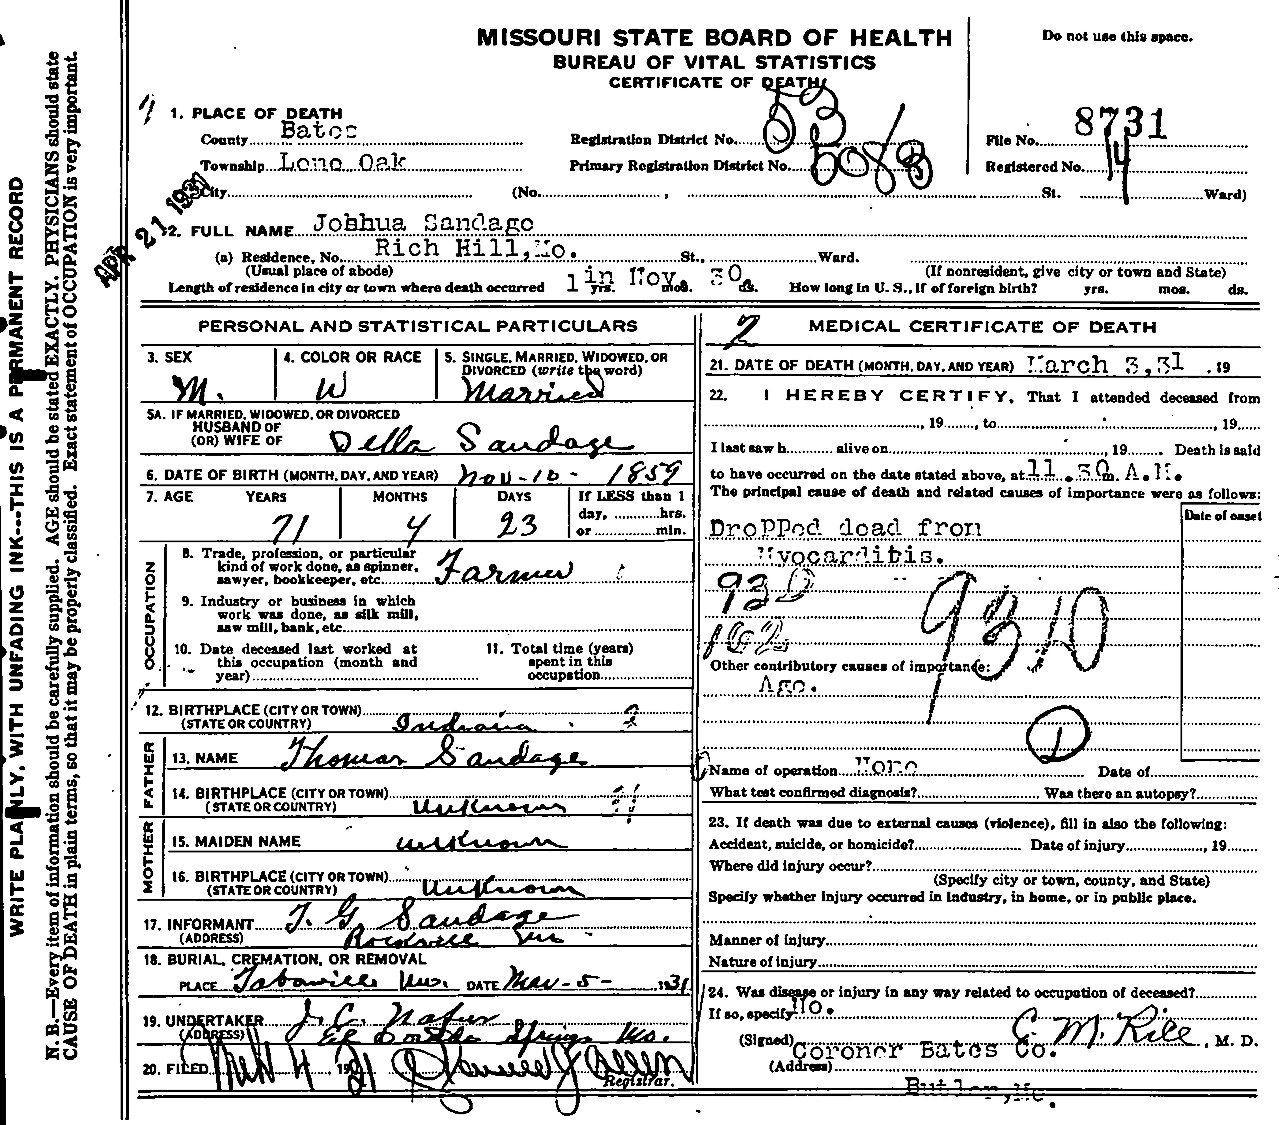 MISSOURI STATE BOARD OF HEALTH
BUREAU OF VITAL STATISTICS
CERTIFICATE OF DEATH
Do not use this space.
1. PLACE OF DEATH
County Bates
Township Lone Oak
City (No. , St. Ward)
Registration District No. 53
Primary Registration District No. 5088
File No. 8731
Registered No. 14
APR 21 1931
2. FULL NAME Joshua Sandage
(a) Residence, No. Rich Hill, Mo. St., Ward.
(Usual place of abode) (If nonresident, give city or town and State)
Length of residence in city or town where death occurred 1 in Nov. 30 yrs. mos. ds. How long in U. S., if of foreign birth? yrs. mos. ds.
PERSONAL AND STATISTICAL PARTICULARS
3. SEX M.
4. COLOR OR RACE W
5. SINGLE, MARRIED, WIDOWED, OR DIVORCED (write the word) Married
5A. IF MARRIED, WIDOWED, OR DIVORCED
HUSBAND OF
(OR) WIFE OF Della Sandage
6. DATE OF BIRTH (MONTH, DAY, AND YEAR) Nov-10-1859
7. AGE YEARS MONTHS DAYS If LESS than 1
71 4 23 day, hrs.
or min.
OCCUPATION
8. Trade, profession, or particular
kind of work done, as spinner,
sawyer, bookkeeper, etc. Farmer
9. Industry or business in which
work was done, as silk mill,
saw mill, bank, etc.
10. Date deceased last worked at
this occupation (month and
year)
11. Total time (years)
spent in this
occupation
12. BIRTHPLACE (CITY OR TOWN)
(STATE OR COUNTRY) Indiana
FATHER
13. NAME Thomas Sandage
14. BIRTHPLACE (CITY OR TOWN)
(STATE OR COUNTRY) Unknown
MOTHER
15. MAIDEN NAME unknown
16. BIRTHPLACE (CITY OR TOWN)
(STATE OR COUNTRY) Unknown
17. INFORMANT T. G. Sandage
(ADDRESS) Rockville Mo
18. BURIAL, CREMATION, OR REMOVAL
PLACE Taborville Mo. DATE Mar-5- 1931
19. UNDERTAKER
(ADDRESS) El Dorado Springs Mo.
20. FILED Mch 4 1931
Registrar.
2 MEDICAL CERTIFICATE OF DEATH
21. DATE OF DEATH (MONTH, DAY, AND YEAR) March 3,31 , 19
22. I HEREBY CERTIFY, That I attended deceased from
, 19 , to , 19
I last saw h alive on , 19 Death is said
to have occurred on the date stated above, at 11.30 m. A.M.
The principal cause of death and related causes of importance were as follows:
Date of onset
Dropped dead from
Myocarditis.
93D
162
9310
Other contributory causes of importance:
Age.
D
Name of operation None Date of
What test confirmed diagnosis? Was there an autopsy?
23. If death was due to external causes (violence), fill in also the following:
Accident, suicide, or homicide? Date of injury , 19
Where did injury occur?
(Specify city or town, county, and State)
Specify whether injury occurred in industry, in home, or in public place.
Manner of injury
Nature of injury
24. Was disease or injury in any way related to occupation of deceased?
If so, specify No.
(Signed) E. M. Rice , M. D.
Coroner Bates Co.
(Address)
Butler, Mo.
WRITE PLAINLY, WITH UNFADING INK---THIS IS A PERMANENT RECORD
N. B.—Every item of information should be carefully supplied. AGE should be stated EXACTLY. PHYSICIANS should state
CAUSE OF DEATH in plain terms, so that it may be properly classified. Exact statement of OCCUPATION is very important.